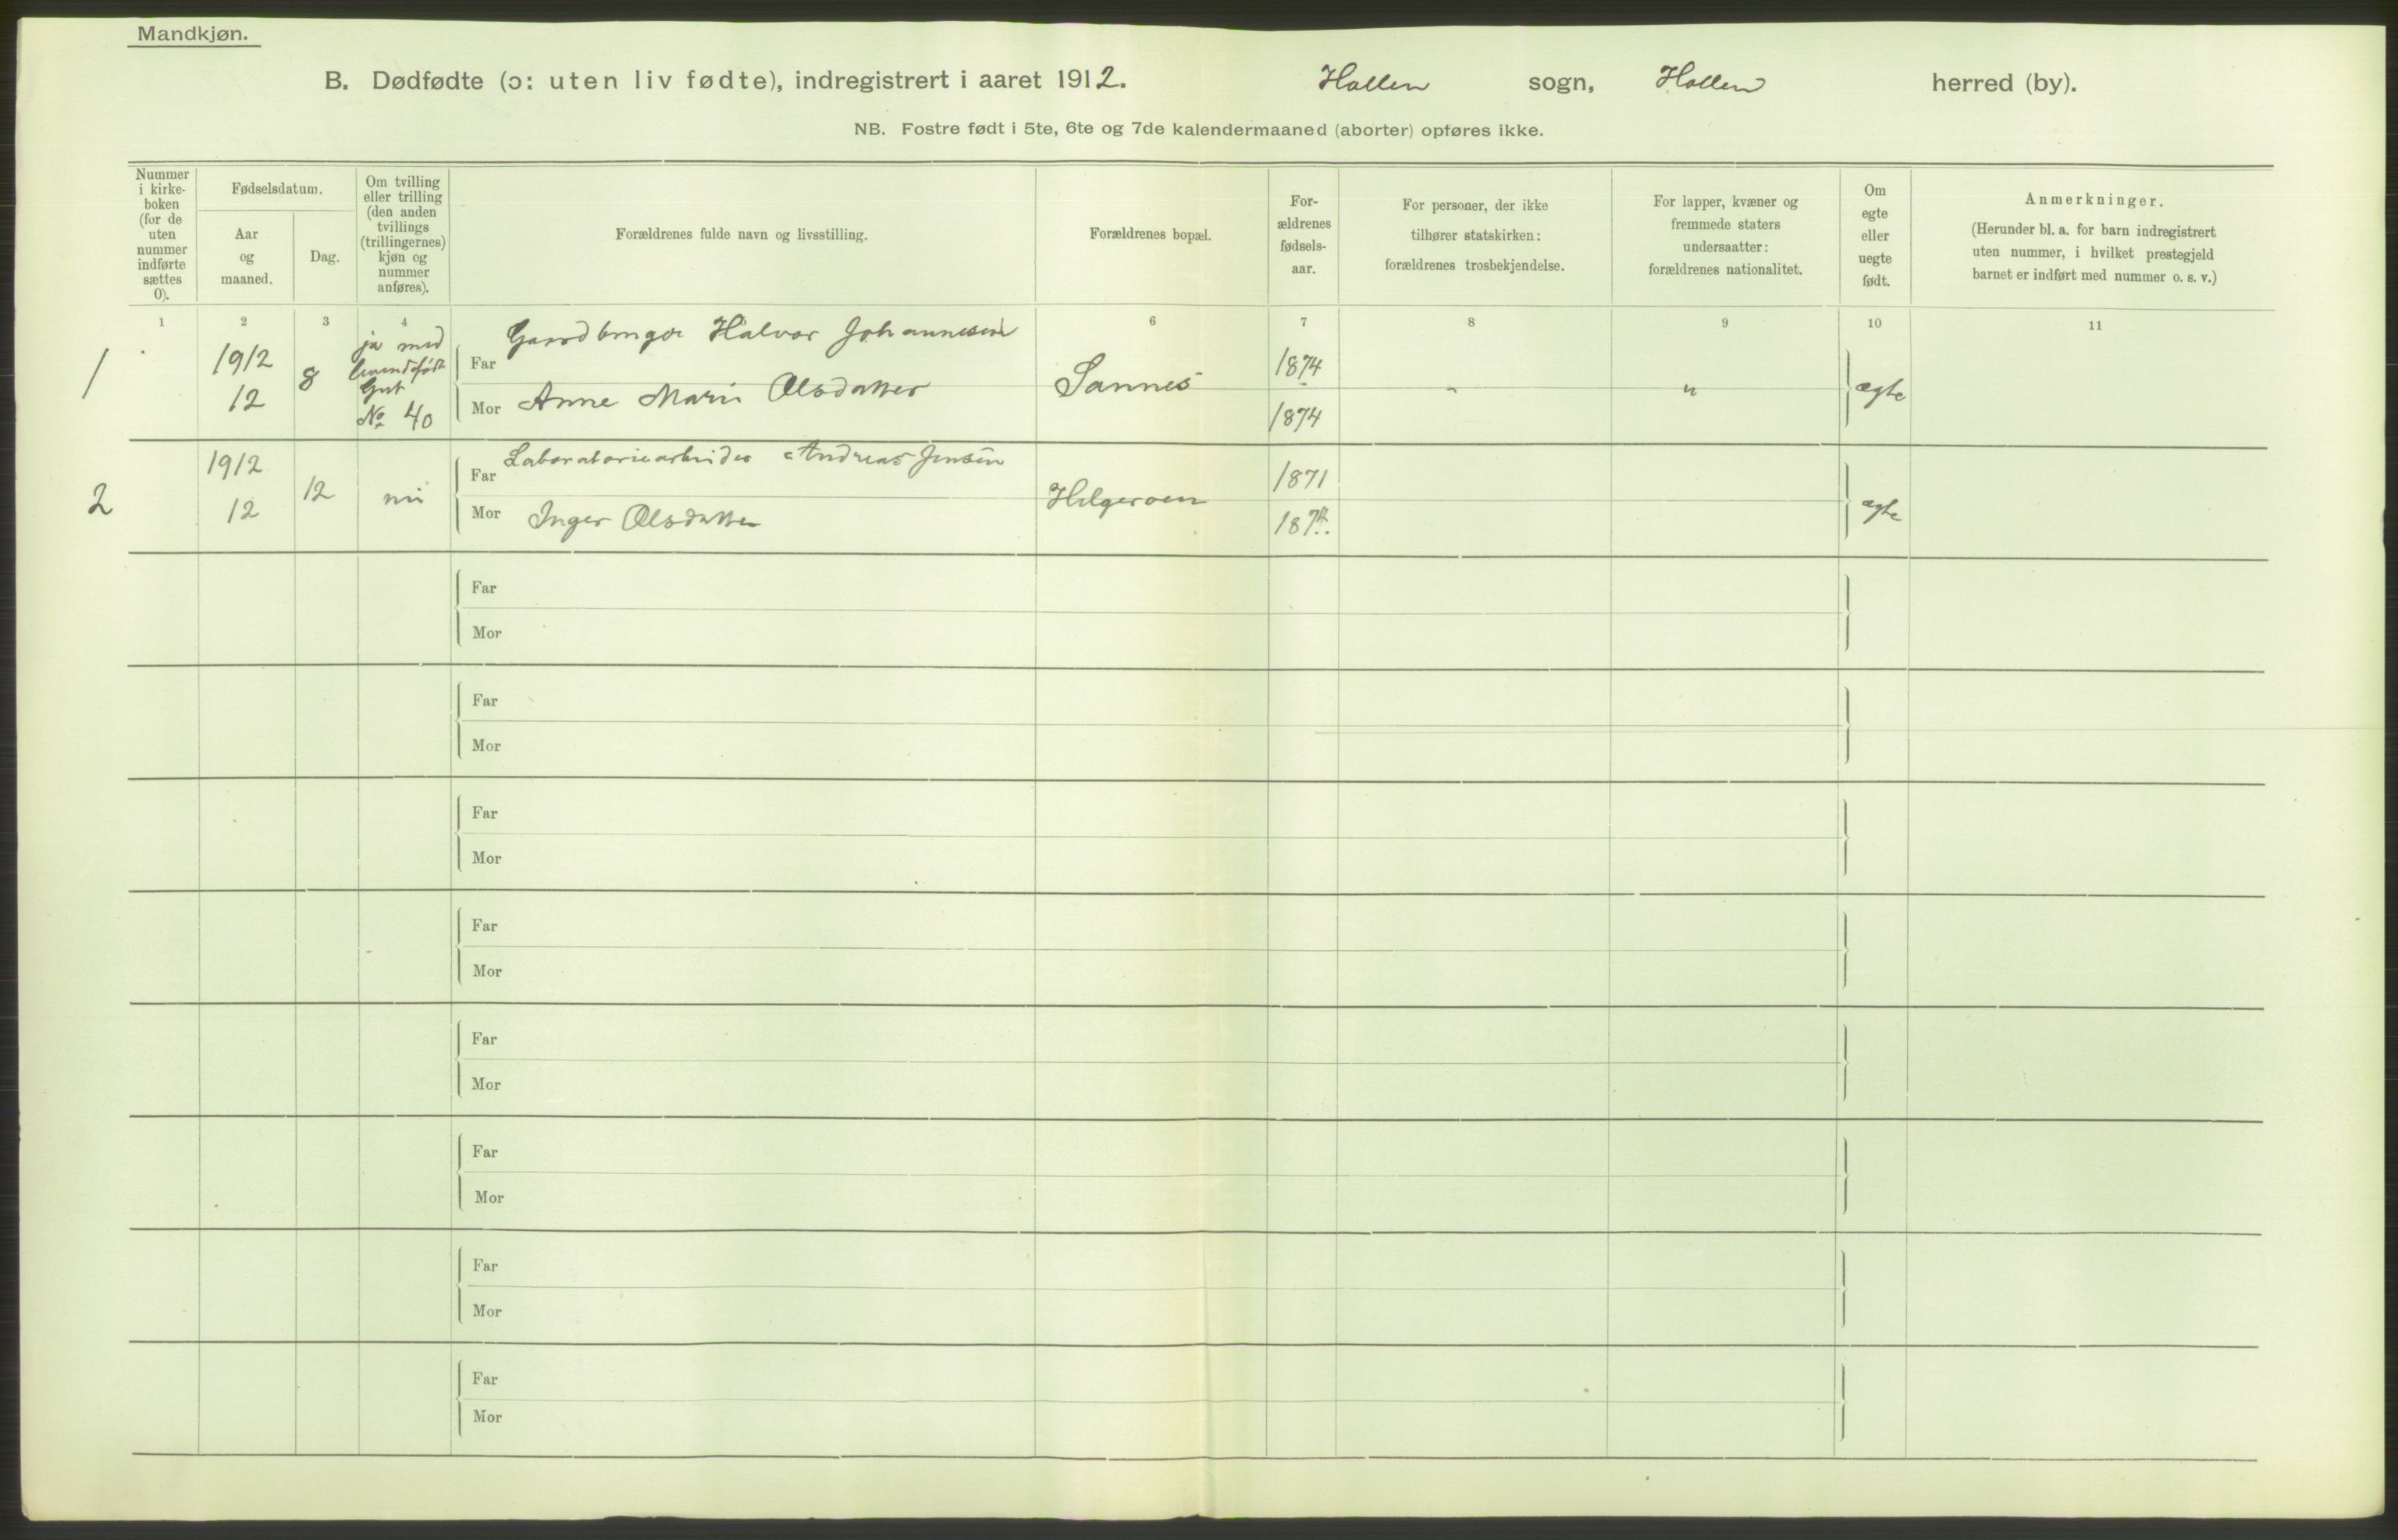 Mandkjøn.
B. Dødfødte (ɔ: uten liv fødte), indregistrert i aaret 1912. Hollen sogn, Hollen herred (by).
NB. Fostre født i 5te, 6te og 7de kalendermaaned (aborter) opføres ikke.
Nummer
i kirke-
boken
(for de
uten
nummer
indførte
sættes
0).
Fødselsdatum.
Aar
og
maaned.
Dag.
Om tvilling
eller trilling
(den anden
tvillings
(trillingernes)
kjøn og
nummer
anføres).
Forældrenes fulde navn og livsstilling.
Forældrenes bopæl.
For-
ældrenes
fødsels-
aar.
For personer, der ikke
tilhører statskirken:
forældrenes trosbekjendelse.
For lapper, kvæner og
fremmede staters
undersaatter:
forældrenes nationalitet.
Om
egte
eller
uegte
født.
Anmerkninger.
(Herunder bl. a. for barn indregistrert
uten nummer, i hvilket prestegjeld
barnet er indført med nummer o. s. v.)
1 2 3 4 6 7 8 9 10 11
1
1912
12
8
ja med
levendefødt
Gut
No 40
Far Gaardbruger Halvor Johannesen
Mor Anne Marie Olsdatter
Sannes
1874
1874
"
"
ægte
2
1912
12
12
nei
Far Laboratoriearbeider Andreas Jensen
Mor Inger Olsdatter
Helgeroen
1871
1874.
ægte
Far
Mor
Far
Mor
Far
Mor
Far
Mor
Far
Mor
Far
Mor
Far
Mor
Far
Mor